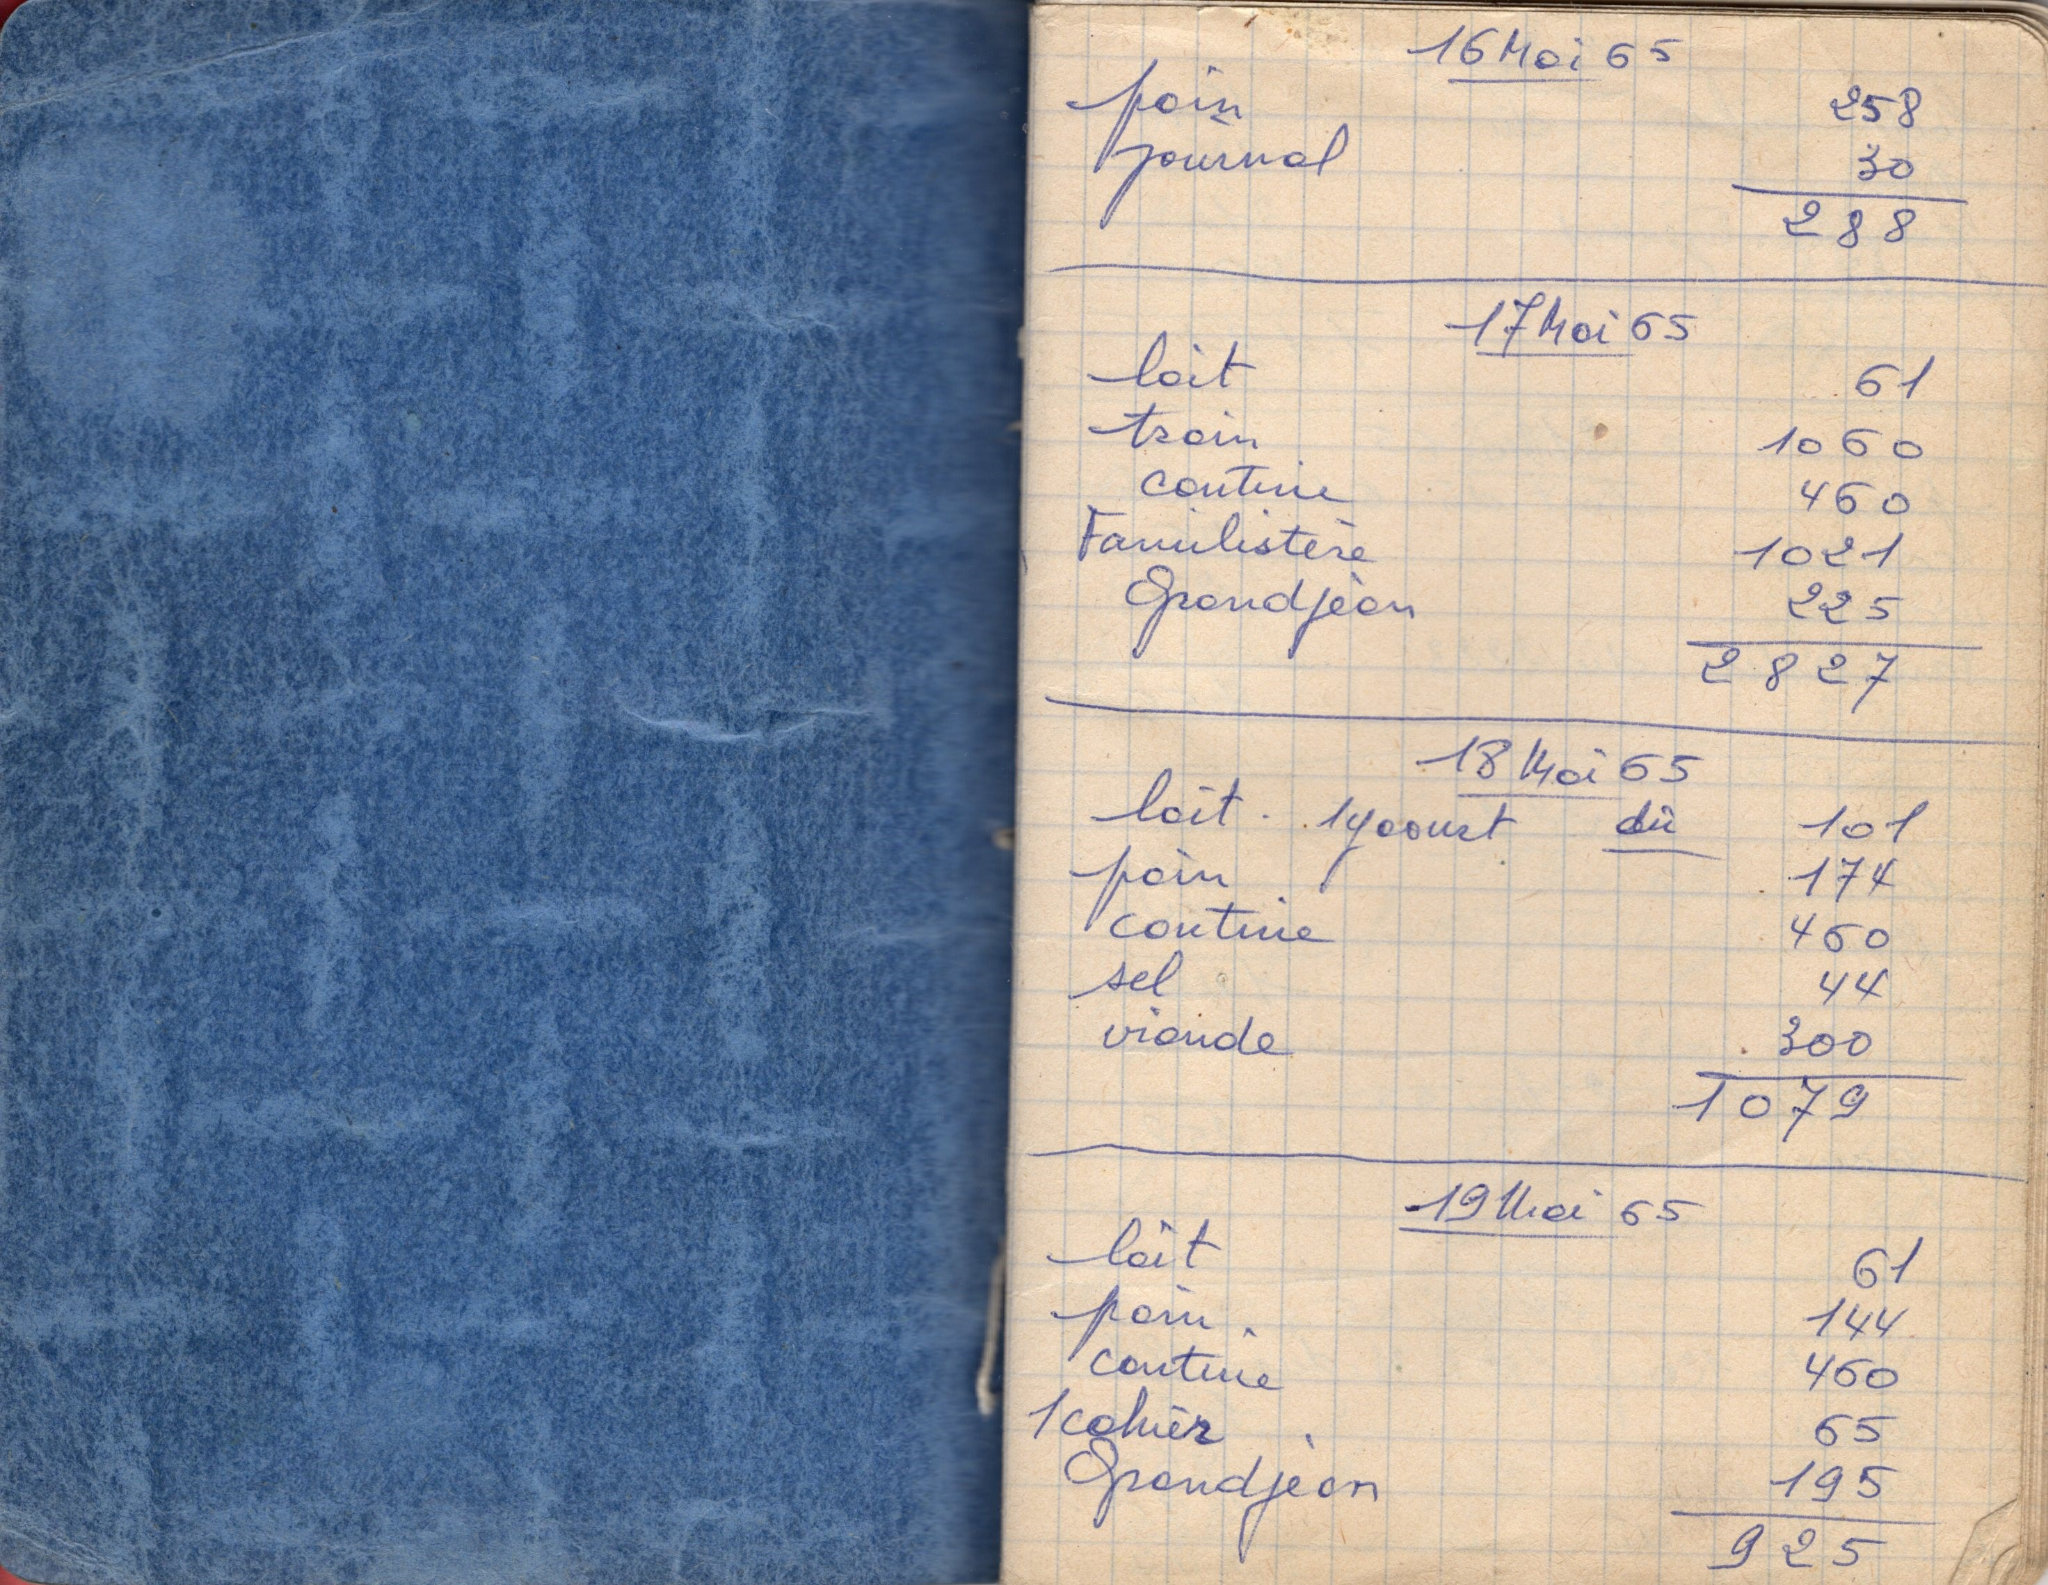 16 Mai 65
pain 258
journal 30
288
17 Mai 65
lait 61
train 1060
cantine 460
Familistère 1021
Grandjean 225
2827
18 Mai 65
lait. 1 yaourt dû 101
pain 174
cantine 460
sel 44
viande 300
1079
19 Mai 65
lait 61
pain. 144
cantine 460
1 cahier 65
Grandjean 195
925